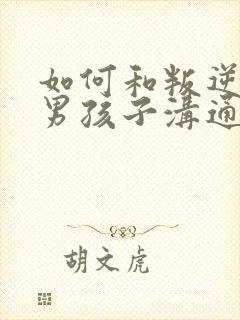 如何和叛逆
男孩子溝通
胡文虎